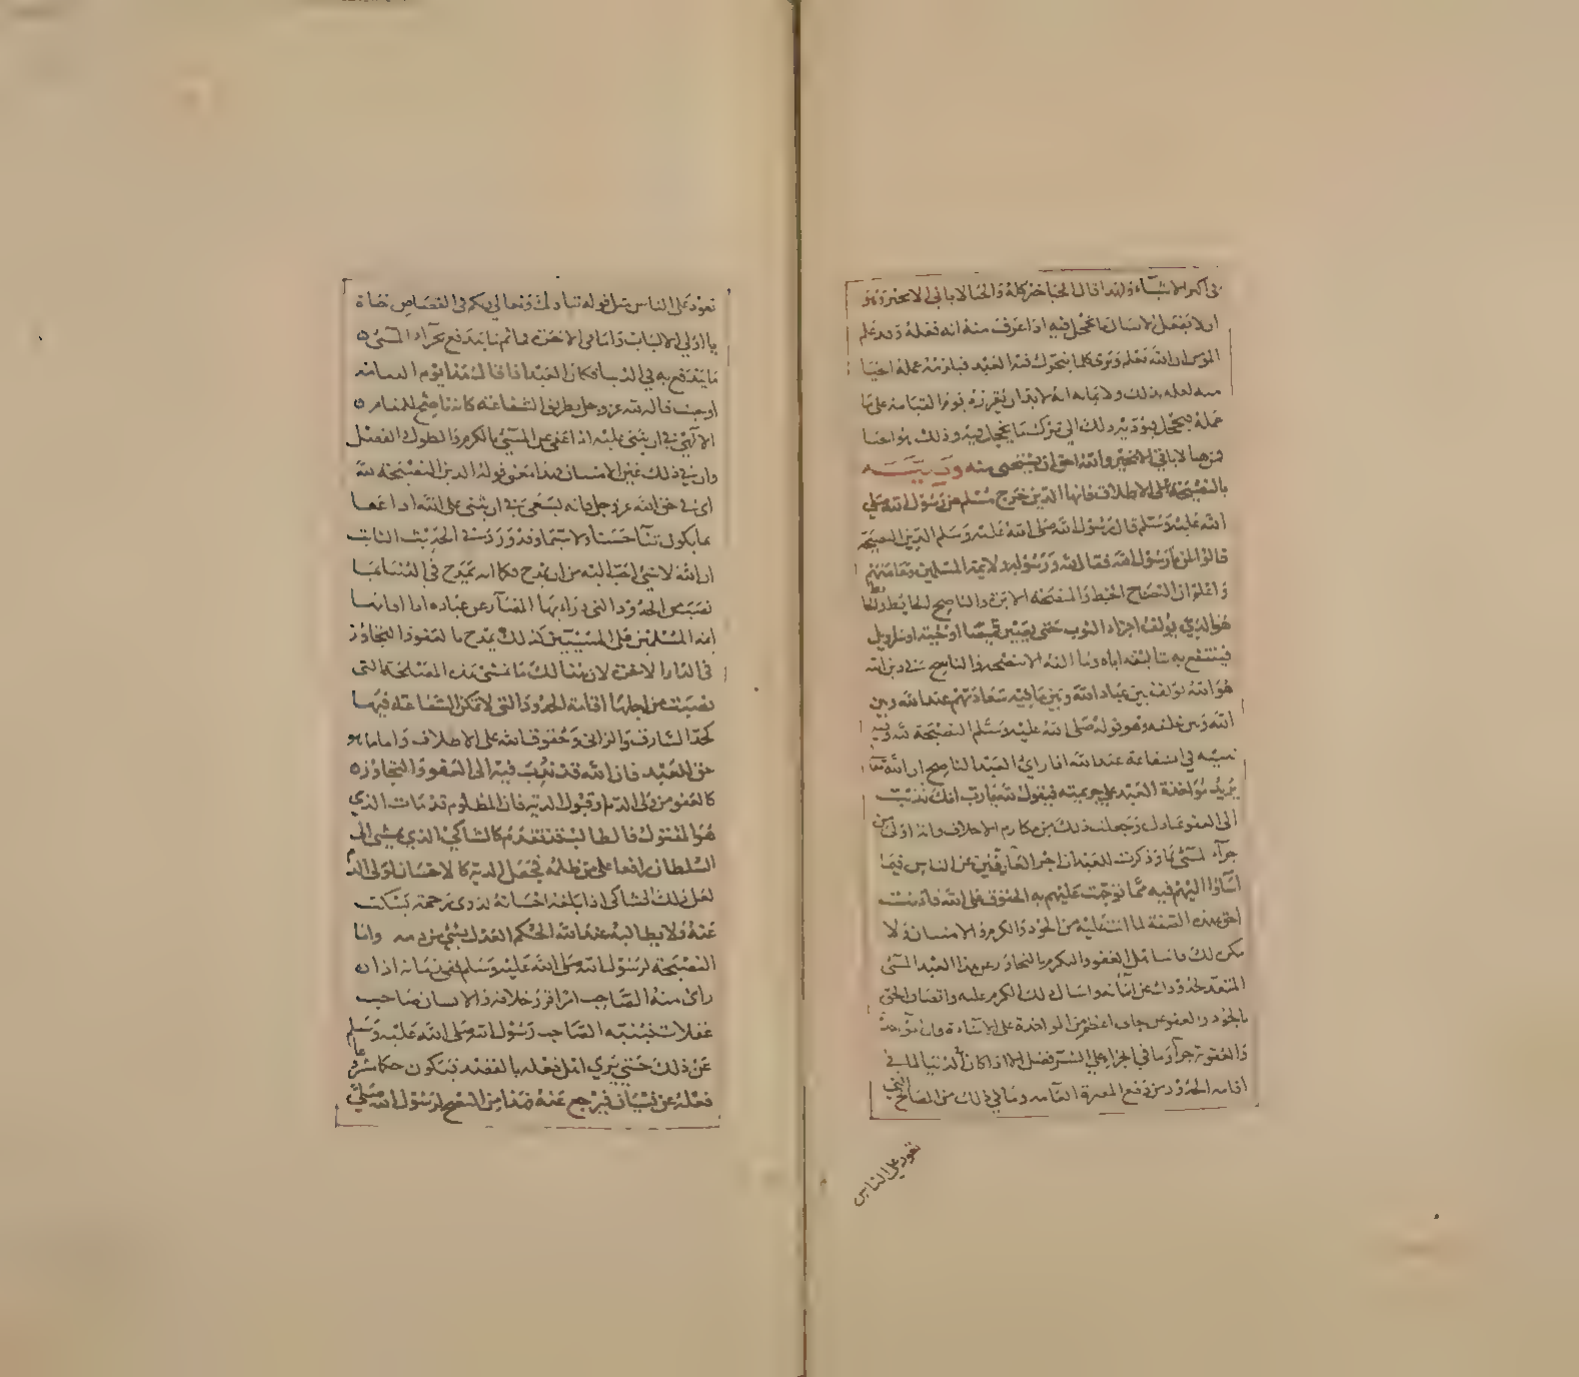 في اكبر الاشياء ولهذا قال الحيا خير كله والحيا لا ياتي الا بخير وهو
ان لا يفعل الانسان ما يخجل فيه اذا عرف منه انه فعله وقد علم
المؤمن ان الله يعلم ويرى كلما يتحرك فيه العبد فيلزمه عمله الحيا
منه لعلمه بذلك ولايمانه انه لا بد ان يقرره يوم القيامة على ما
عمله فيخجل فيؤديه ذلك الى ترك ما يخجل فيه وذلك هو الحيا
فمن هنا لا ياتي الا بخير والله احق ان يستحيى منه وصية
بالنصيحة على الاطلاق فانها الدين خرج مسلم عن رسول الله صلى
الله عليه وسلم قال رسول الله صلى الله عليه وسلم الدين النصيحة
قالوا لمن يا رسول الله فقال لله ورسوله ولايمة المسلمين وعامتهم
واعلم ان النصاح الخيط والمنصحة الابرة والناصح الخايط والخايط
هو الذي يؤلف اجزاء الثوب حتى يصير قميصا او غيره او سراويل
فينتفع به بتاليفه اياه وما الفه الا بنصحه والناصح في دين الله
هو الذي يؤلف بين عباد الله وبين ما فيه سعادتهم عند الله وبين
الله وبين خلقه وهو قوله صلى الله عليه وسلم النصيحة لله وفيه
تنبيه في الشفاعة عند الله اذا راى العبد الناصح ان الله تعالى
يريد مواخذة العبد على جريمته فيقول لله يا رب انك ندبت
الى العفو عبادك وجعلت ذلك من مكارم الاخلاق وانه اولى من
جزاء المسئ بما وذكرت للعبد ان اجر العافين عن الناس فيما
اساؤا اليهم فيه مما توجهت عليهم به الحقوق على الله فانت
احق بهذه الصفة لما انت عليه من الجود والكرم والامتنان ولا
مكره لك فانت اهل العفو والكرم بالتجاوز عن هذا العبد المسئ
المتعدي حدودك عن اساته واسبال ذيل الكرم عليه واتصاف الحق
بالجود والعفو عن جان اعظم من المواخذة على الاساءة فان
والعقوبة جزاء وما في الجزاء على الشر فضل الا اذا كان في الدنيا لما في
اقامة الحدود من دفع المضرة العامة وما في ذلك من المصالح التي
تعود على الناس
تعود على الناس مثل قوله تبارك وتعالى ولكم في القصاص حياة
يا اولي الالباب واما في الاخرة فما ثم ما يندفع بجزاء المسئ
ما يندفع به في الدنيا فكان العبد اذا قال هذا يوم القيامة
او حيث قاله لله عز وجل بطريق الشفاعة كانه ناصح للمقام
الالهي في ان يثنى عليه اذا عفى عن المسئ بالكرم والطول والفضل
وان في ذلك عين الامتنان فهذا معنى قوله الدين النصيحة لله
اي في حق الله عز وجل فانه يسعى في ان يثنى على الله اذا عفا
بما يكون ثناء حسنا ولا سيما وقد ورد في الحديث الثابت
ان الله لا شئ احب اليه من ان يمدح فكما انه يمدح في الدنيا بما
نصب من الحدود التي درا بها المضار عن عباده اذا اقامها
ايمة المسلمين على المسيئين كذلك يمدح بالعفو والتجاوز
في الدار الاخرة لان هنالك ما تمشي هذه المصلحة التي
نصبت من اجلها اقامة الحدود التي لا تمكن الشفاعة فيها
كحد السارق والزاني وحقوق الله على الاطلاق واما ما هو
حق للعبد فان الله قد ندب فيه الى العفو والتجاوز
كالعفو من ولى الدم او قبول الدية فان المظلوم قد مات الذي
هو المقتول فالطالب قد تقدم كالشاكي الذي يمشي الى
السلطان رافعا على من ظلمه فجعل الدية كالاحسان لولى الدم
لعل ذلك الشاكى اذا بلغه احسانه لذوي رحمة يسكت
عنه ولا يطالبه عند الله الحكم العدل بشئ من دمه واما
النصيحة لرسول الله صلى الله عليه وسلم ففي زمانه اذا
راى منه الصاحب امرا قرر خلافه والانسان صاحب
غفلات فينبه الصاحب رسول الله صلى الله عليه وسلم
عن ذلك حتى يرى هل فعله بالقصد فيكون حكما مشروعا
فعله عن نسيان فيرجع عنه فهذا من النصح لرسول الله صلى